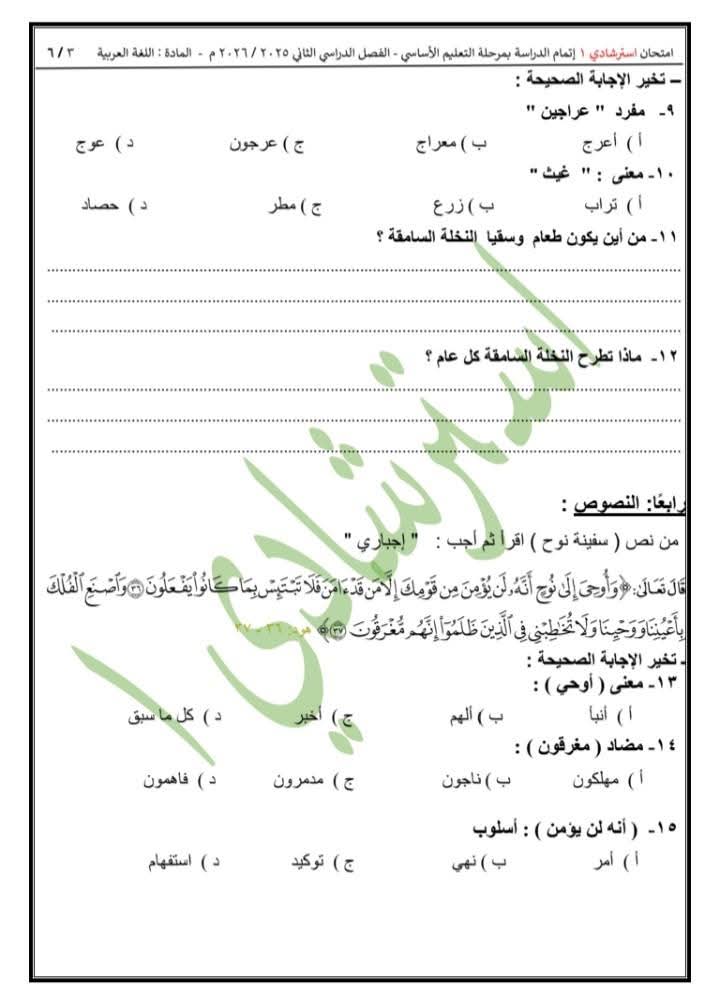 امتحان استرشادي ١ إتمام الدراسة بمرحلة التعليم الأساسي - الفصل الدراسي الثاني ٢٠٢٥ / ٢٠٢٦ م - المادة : اللغة العربية ٣ / ٦
– تخير الإجابة الصحيحة :
٩- مفرد " عراجين "
أ ) أعرج ب ) معراج ج ) عرجون د ) عوج
١٠- معنى : " غيث "
أ ) تراب ب ) زرع ج ) مطر د ) حصاد
١١- من أين يكون طعام وسقيا النخلة السامقة ؟
١٢- ماذا تطرح النخلة السامقة كل عام ؟
رابعًا: النصوص :
من نص ( سفينة نوح ) اقرأ ثم أجب : " إجباري "
قَالَ تَعَالَى: ﴿ وَأُوحِىَ إِلَىٰ نُوحٍ أَنَّهُۥ لَن يُؤْمِنَ مِن قَوْمِكَ إِلَّا مَن قَدْ ءَامَنَ فَلَا تَبْتَئِسْ بِمَا كَانُوا۟ يَفْعَلُونَ ٣٦ وَٱصْنَعِ ٱلْفُلْكَ
بِأَعْيُنِنَا وَوَحْيِنَا وَلَا تُخَٰطِبْنِى فِى ٱلَّذِينَ ظَلَمُوٓا۟ إِنَّهُم مُّغْرَقُونَ ٣٧ ﴾ هود: ٣٦ - ٣٧
- تخير الإجابة الصحيحة :
١٣- معنى ( أوحي ) :
أ ) أنبأ ب ) ألهم ج ) أخبر د ) كل ما سبق
١٤- مضاد ( مغرقون ) :
أ ) مهلكون ب ) ناجون ج ) مدمرون د ) فاهمون
١٥- ( أنه لن يؤمن ) : أسلوب
أ ) أمر ب ) نهي ج ) توكيد د ) استفهام
استرشادي ١